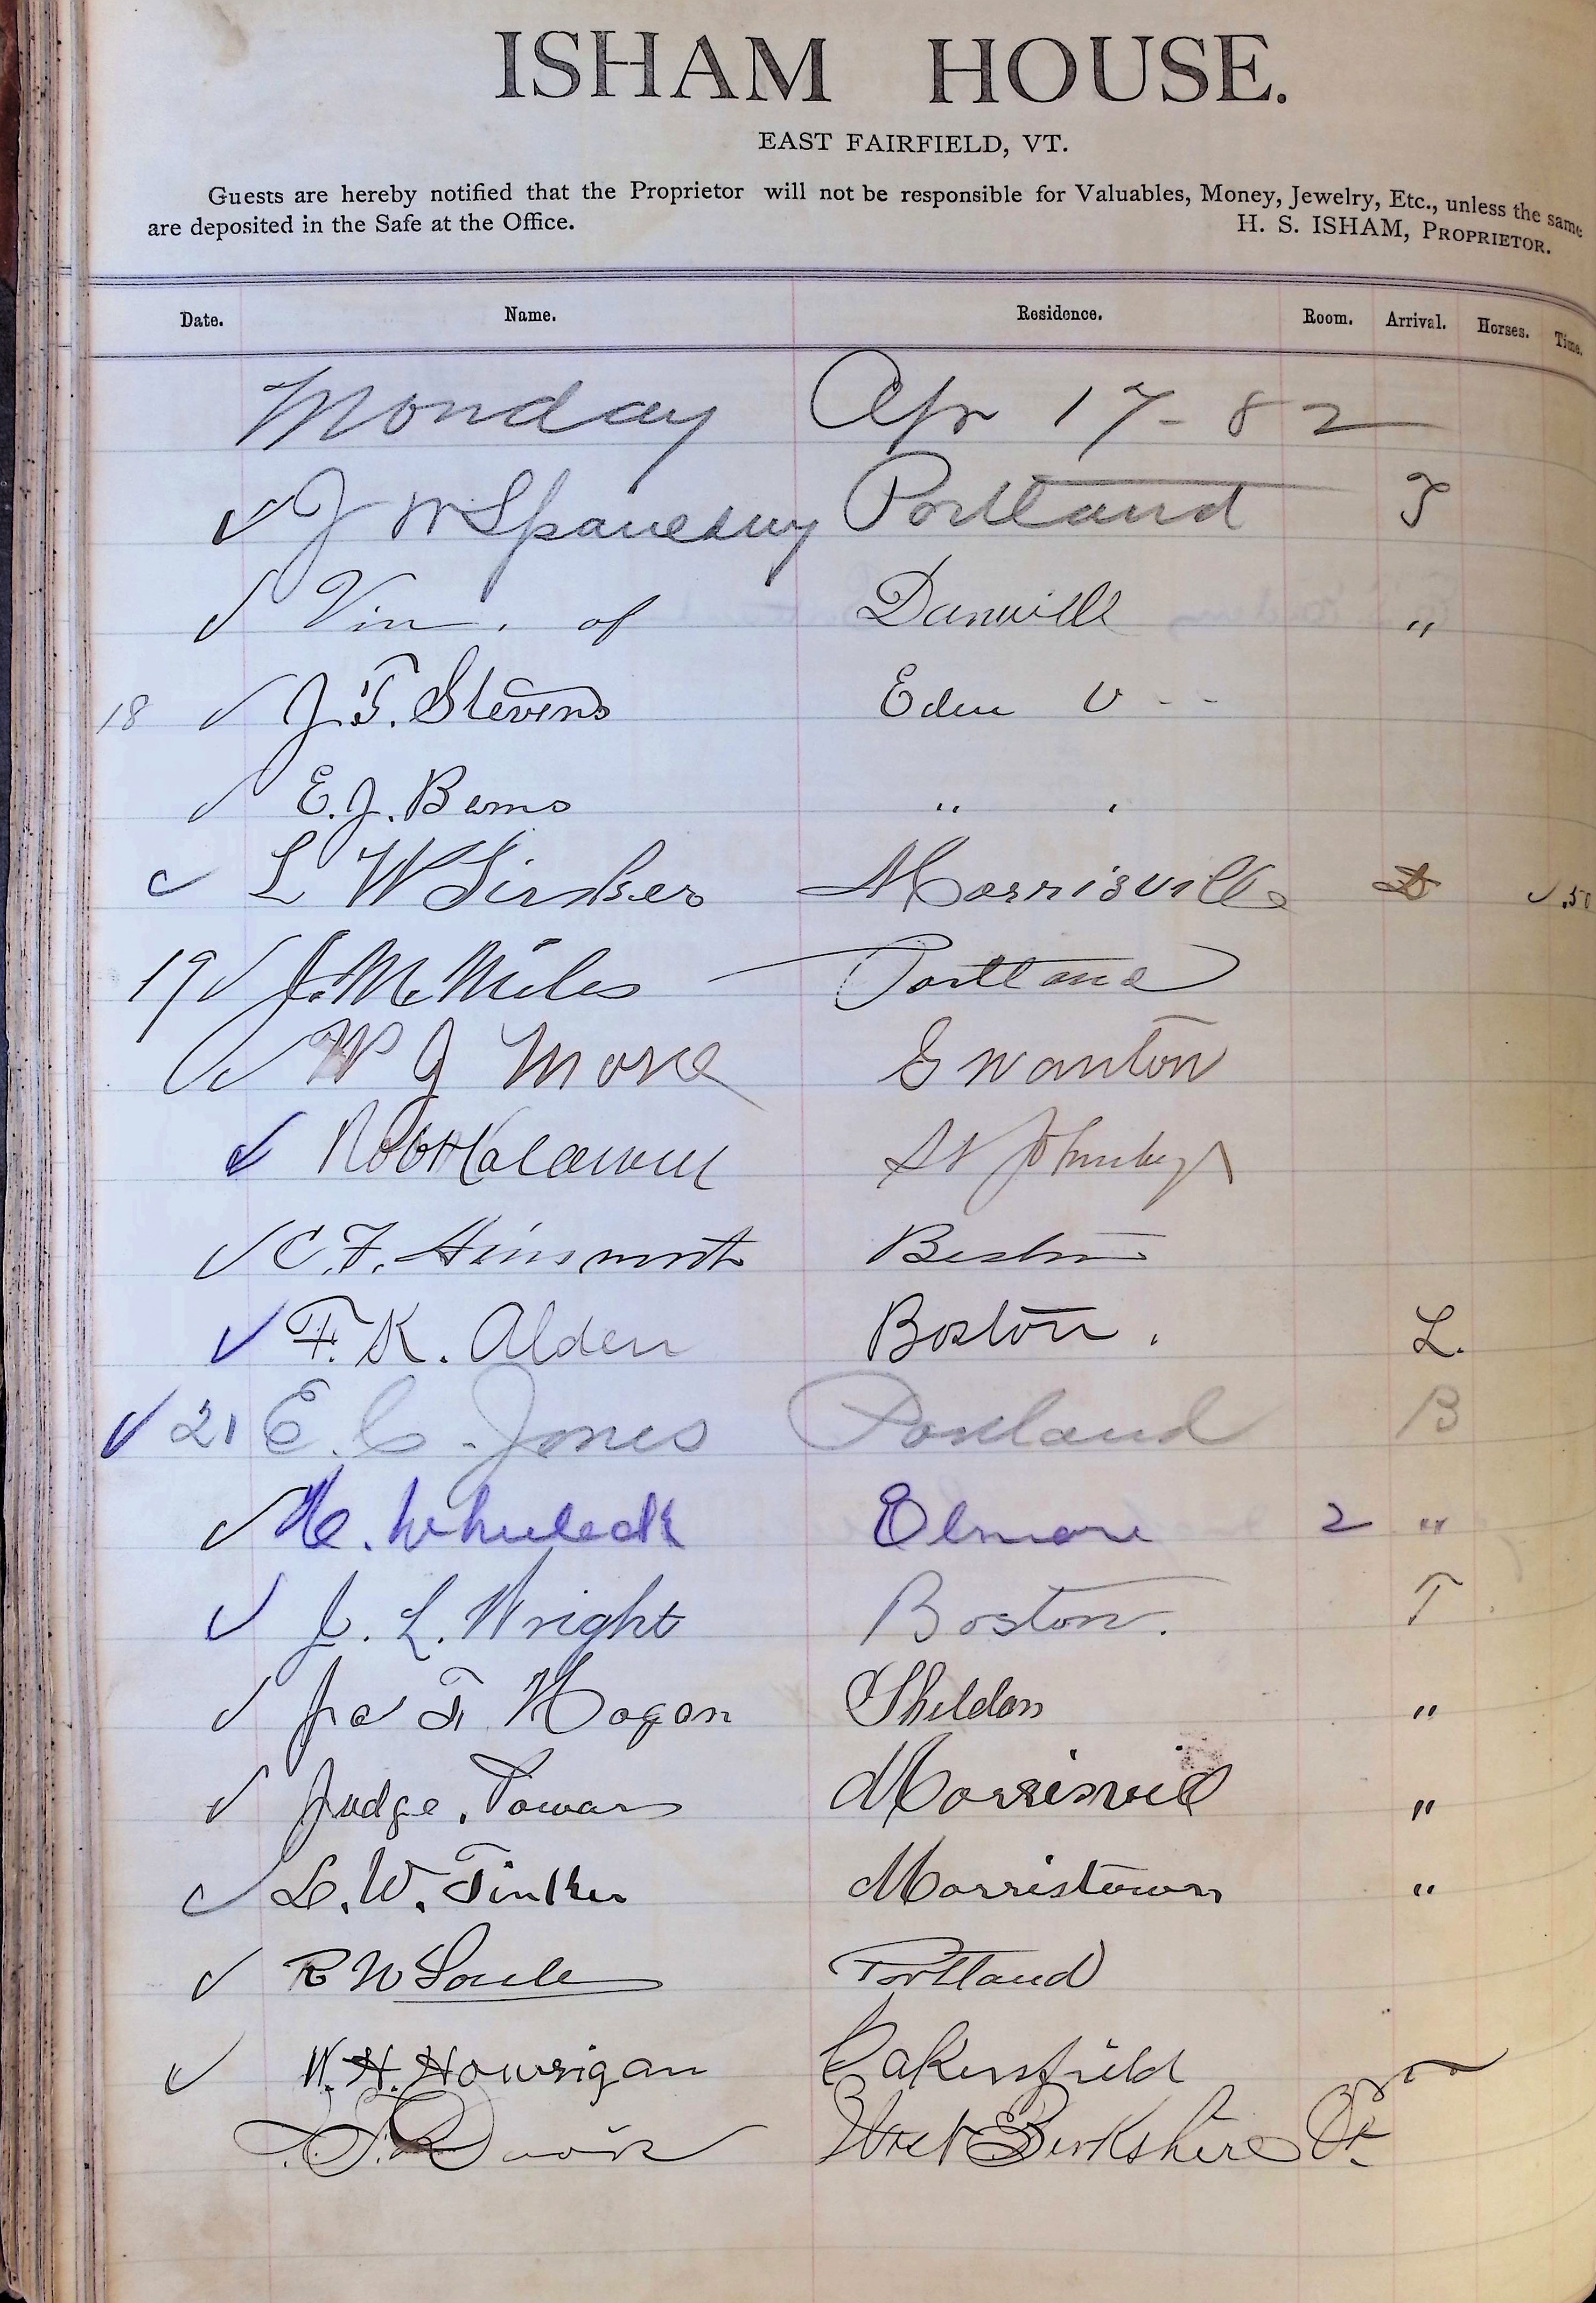 ISHAM HOUSE.
EAST FAIRFIELD, VT.
Guests are hereby notified that the Proprietor will not be responsible for Valuables, Money, Jewelry, Etc., unless the same
are deposited in the Safe at the Office. H. S. ISHAM, PROPRIETOR.
Date. Name. Residence. Room. Arrival. Horses. Time.
Monday Apr 17-82
✓ J W Portland T
✓ of Danville "
18 ✓ J. T. Stevens Eden V - -
✓ E. J. " '
✓ L W Morrisville ✓ .50
19 ✓ J. M. Miles Portland
✓ W J Swanton
✓ St Johnsbury
✓ C. F. Boston
✓ F. K. Alden Boston. L.
✓ 21 E. C. Jones Portland B
✓ Elmore 2 "
✓ J. L. Wright Boston. T
✓ Ira F. Hogan Sheldon "
✓ Judge. Morrisvill "
✓ L. W. Tinker Morristown "
✓ R W Soule Portland
✓ W. H. Howrigan Bakersfield
West Berkshire Vt.